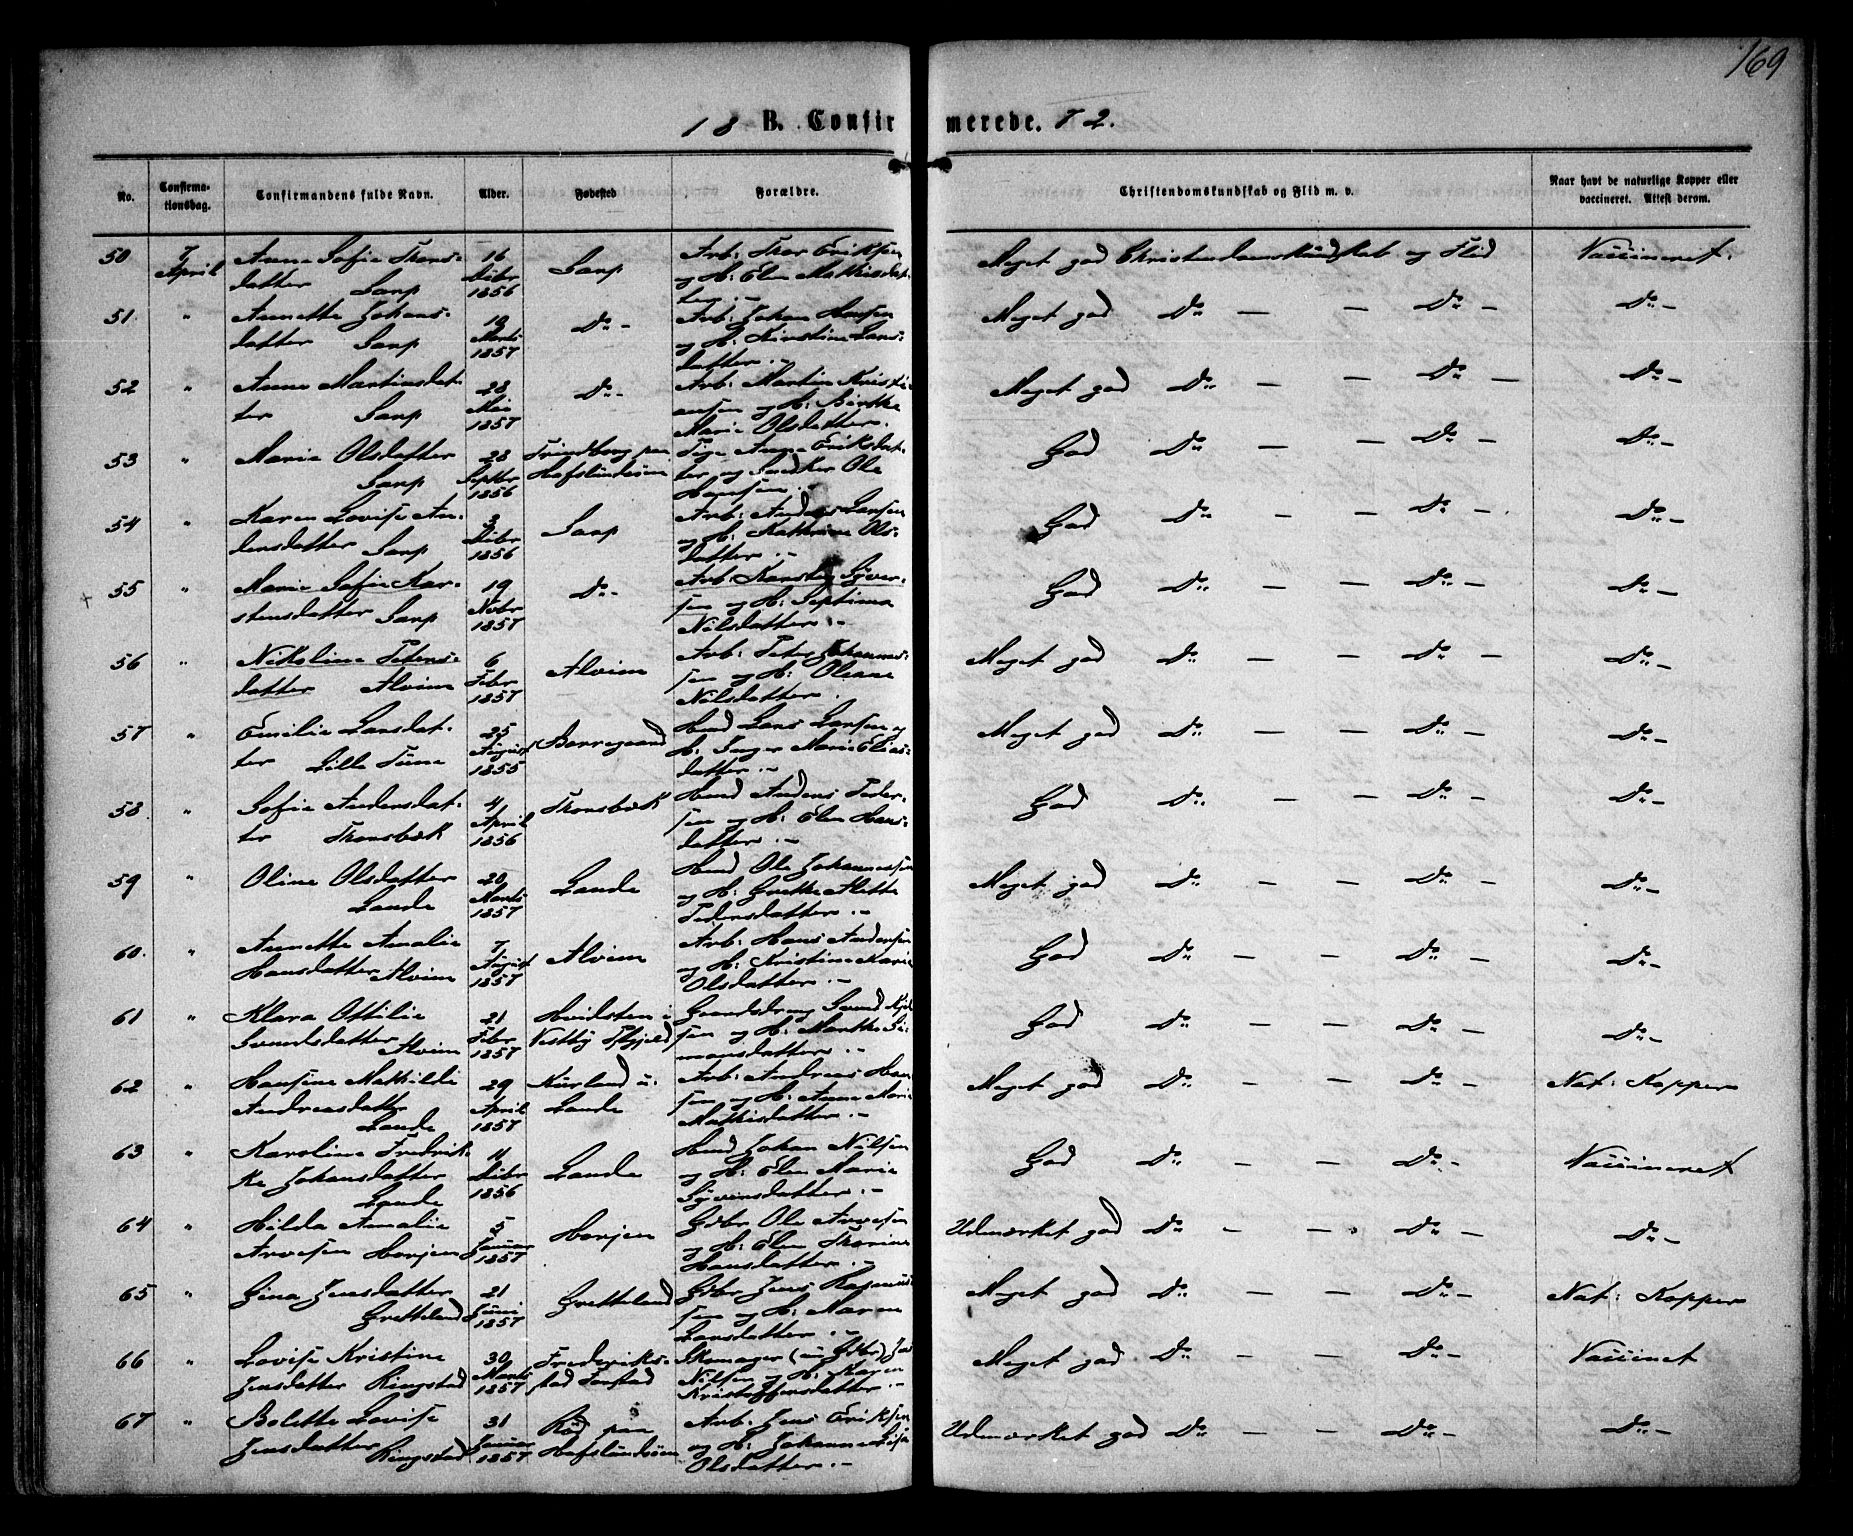 169
18 B. Confirmerede. 72.
No. Confirmationsdag. Confirmandens fulde Navn. Alder. Fødested Forældre. Christendomskundskab og Flid m. v. Naar havt de naturlige Kopper eller vaccineret. Attest derom.
50 7 April Anne Sofie Thorsdatter Sarp 16 Debr 1856 Sarp Arb: Thor Eriksen og H: Elen Mathisdatter.- Meget god Christendomskundskab og Flid Vaccineret.
51. " Annette Johansdatter Sarp 19 Marts 1857 Do- Arb: Johan Hansen og H: Kirstine Larsdatter.- Meget god Do — — Do — Do —
52 " Anne Martinsdatter Sarp 28 Mai 1857 Do- Arb: Martin Kristiansen og H: Birthe Marie Olsdatter. Meget god Do — — Do — Do —
53 " Marie Olsdatter Sarp 28 Septbr 1856 paa Hafslundsøen Pige Anne Eriksdatter og Snedker Ole Hansen.- God Do — — Do — Do —
54 " Karen Lovise Andersdatter Sarp 3 Debr 1856 Sarp Arb: Anders Larsen og H: Kathrine Olsdatter.- God Do — — Do — Do —
+ 55 " Marie Sofie Karstensdatter Sarp 19 Novbr 1857 Do- Arb: Karsten Syversen og H: Septima Nilsdatter.- God Do — — Do — Do —
56 " Nikoline Petersdatter Alvim 6 Febr 1857 Alvim Arb: Peter Johannessen og H: Oleane Nilsdatter. Meget god Do — — Do — Do —
57 " Emilie Larsdatter Lille Tune 25 August 1855 Borregaard Hmd Lars Larsen og H: Inger Marie Eliasdatter.- Meget god Do — — Do — Do —
58. " Sofie Andersdatter Thorsbæk 4 April 1856 Thorsbæk Hmd Anders Pedersen og H: Elen Hansdatter.- God Do — — Do — Do —
59 " Oline Olsdatter Lande 20 Marts 1857 Lande Hmd Ole Johannessen og H: Grethe Alette Pedersdatter.- Meget god Do — — Do — Do —
60. " Annette Amalie Hansdatter Alvim 7 August 1857 Alvim Arb: Hans Andersen og H: Kristine Karie Olsdatter.- God Do — — Do — Do —
61 " Klara Ottilie Svendsdatter Alvim 21 Febr 1857 Hvidsten i Vestby Svend og H: Marthe Simonsdatter.- God Do — — Do — Do —
62 " Hansine Mathilde Andreasdatter Lande 29 April 1857 Kurland u. Lande Arb: Andreas Hansen og H: Anne Marie Mathisdatter.- Meget god Do — — Do — Nat: Kopper
63 " Karoline Fredrikke Johansdatter Lande 4 Debr 1856 Lande Hmd Johan Nilsen og H: Elen Marie Syversdatter.- God Do — — Do - Vaccineret
64 " Hilda Amalie Arvesen Horjen 5 Januar 1857 Horjen Gdbr Ole Arvesen og H: Elen Thorine Hansdatter.- Udmærket god Do — — Do — Do —
65 " Gina Jensdatter Gretteland 21 Juni 1857 Gretteland Gdbr Jens Rasmussen og H: Maren Larsdatter.- Meget god Do — — Do — Nat: Kopper
66 " Lovise Kristine Jensdatter Ringstad 30 Marts 1857 Frederikstad Forstad Skomager (nu Gdbr) Jens Nilsen og H: Karen Kristoffersdatter.- Meget god Do — — Do — Vaccinet
67 " Bolette Lovise Jensdatter Ringstad 31 Januar 1857 Röd paa Hafslundsöen Arb: Jens Eriksen og H: Johanne Lovise Olsdatter.- Udmærket god Do — — Do — Do —